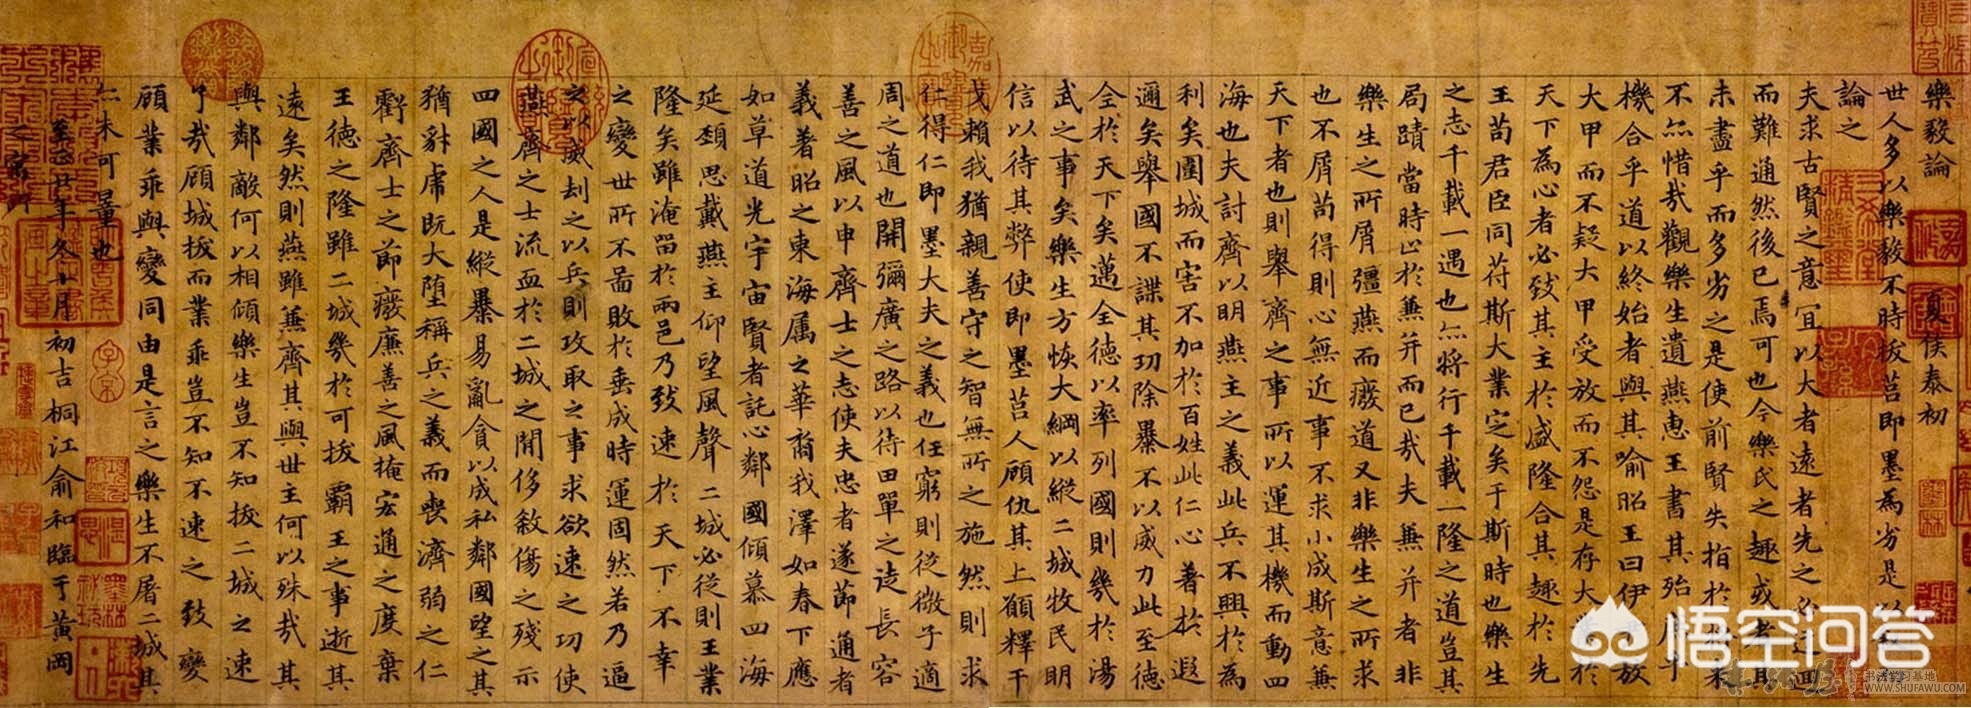 樂毅論 夏侯泰初
世人多以樂毅不時拔莒即墨為劣是以
論之
夫求古賢之意宜以大者遠者先之必迂迴
而難通然後已焉可也今樂氏之趣或者其
未盡乎而多劣之是使前賢失指於將來
不亦惜哉觀樂生遺燕惠王書其殆庶乎
機合乎道以終始者與其喻昭王曰伊尹放
大甲而不疑大甲受放而不怨是存大業於
天下為心者必致其主於盛隆合其趣於先
王苟君臣同苻斯大業定矣于斯時也樂生
之志千載一遇也亦將行千載一隆之道豈其
局蹟當時止於兼并而已哉夫兼并者非
樂生之所屑彊燕而廢道又非樂生之所求
也不屑苟得則心無近事不求小成斯意兼
天下者也則舉齊之事所以運其機而動四
海也夫討齊以明燕主之義此兵不興於為
利矣圍城而害不加於百姓此仁心著於遐
邇矣舉國不謀其功除暴不以威力此至德
全於天下矣邁全德以率列國則幾於湯
武之事矣樂生方恢大綱以縱二城牧民明
信以待其弊使即墨莒人顧仇其上願釋干
戈賴我猶親善守之智無所之施然則求
仁得仁即墨大夫之義也任窮則從微子適
周之道也開彌廣之路以待田單之徒長容
善之風以申齊士之志使夫忠者遂節通者
義著昭之東海属之華裔我澤如春下應
如草道光宇宙賢者託心鄰國傾慕四海
延頸思戴燕主仰望風聲二城必從則王業
隆矣雖淹留於兩邑乃致速於天下不幸
之變世所不啚敗於垂成時運固然若乃逼
之以威刦之以兵則攻取之事求欲速之功使
燕齊之士流血於二城之閒侈敘傷之殘示
四國之人是縱暴易亂貪以成私鄰國望之其
猶豺虎既大墮稱兵之義而喪濟弱之仁
虧齊士之節癈廉善之風掩宏通之度棄
王德之隆雖二城幾於可拔霸王之事逝其
遠矣然則燕雖兼齊其與世主何以殊哉其
與鄰敵何以相傾樂生豈不知拔二城之速
了哉顧城拔而業乖豈不知不速之致變
顧業乖與變同由是言之樂生不屠二城其
亦未可量也
至正廿年冬十月初吉桐江俞和臨于黃岡
之寓所
悟空问答
书法学习基地
WWW.SHUFAWU.COM